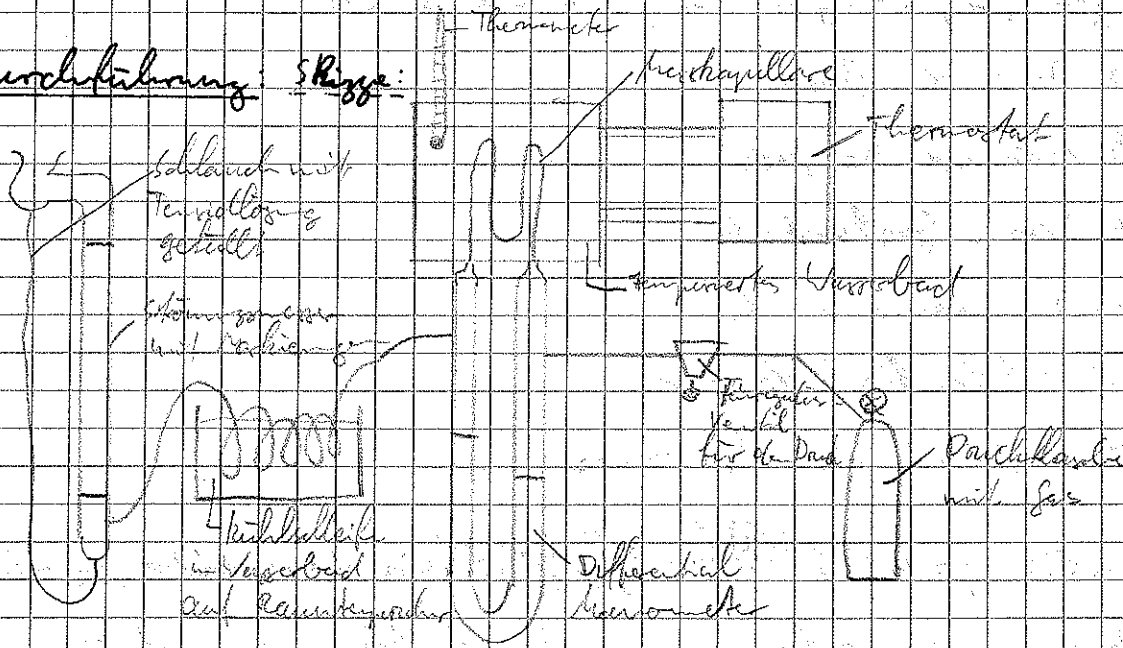 Thermometer
Durchführung: Skizze:
Messkapillare
Thermostat
Schlauch mit
Tensidlösung
gefüllt
temperiertes Wasserbad
Strömungsmesser
mit Markierungen
Feinregulier-
Ventil
für den Druck
Druckflasche
mit Gas
Kühlschleife
in Wasserbad
auf Raumtemperatur
Differential
Manometer